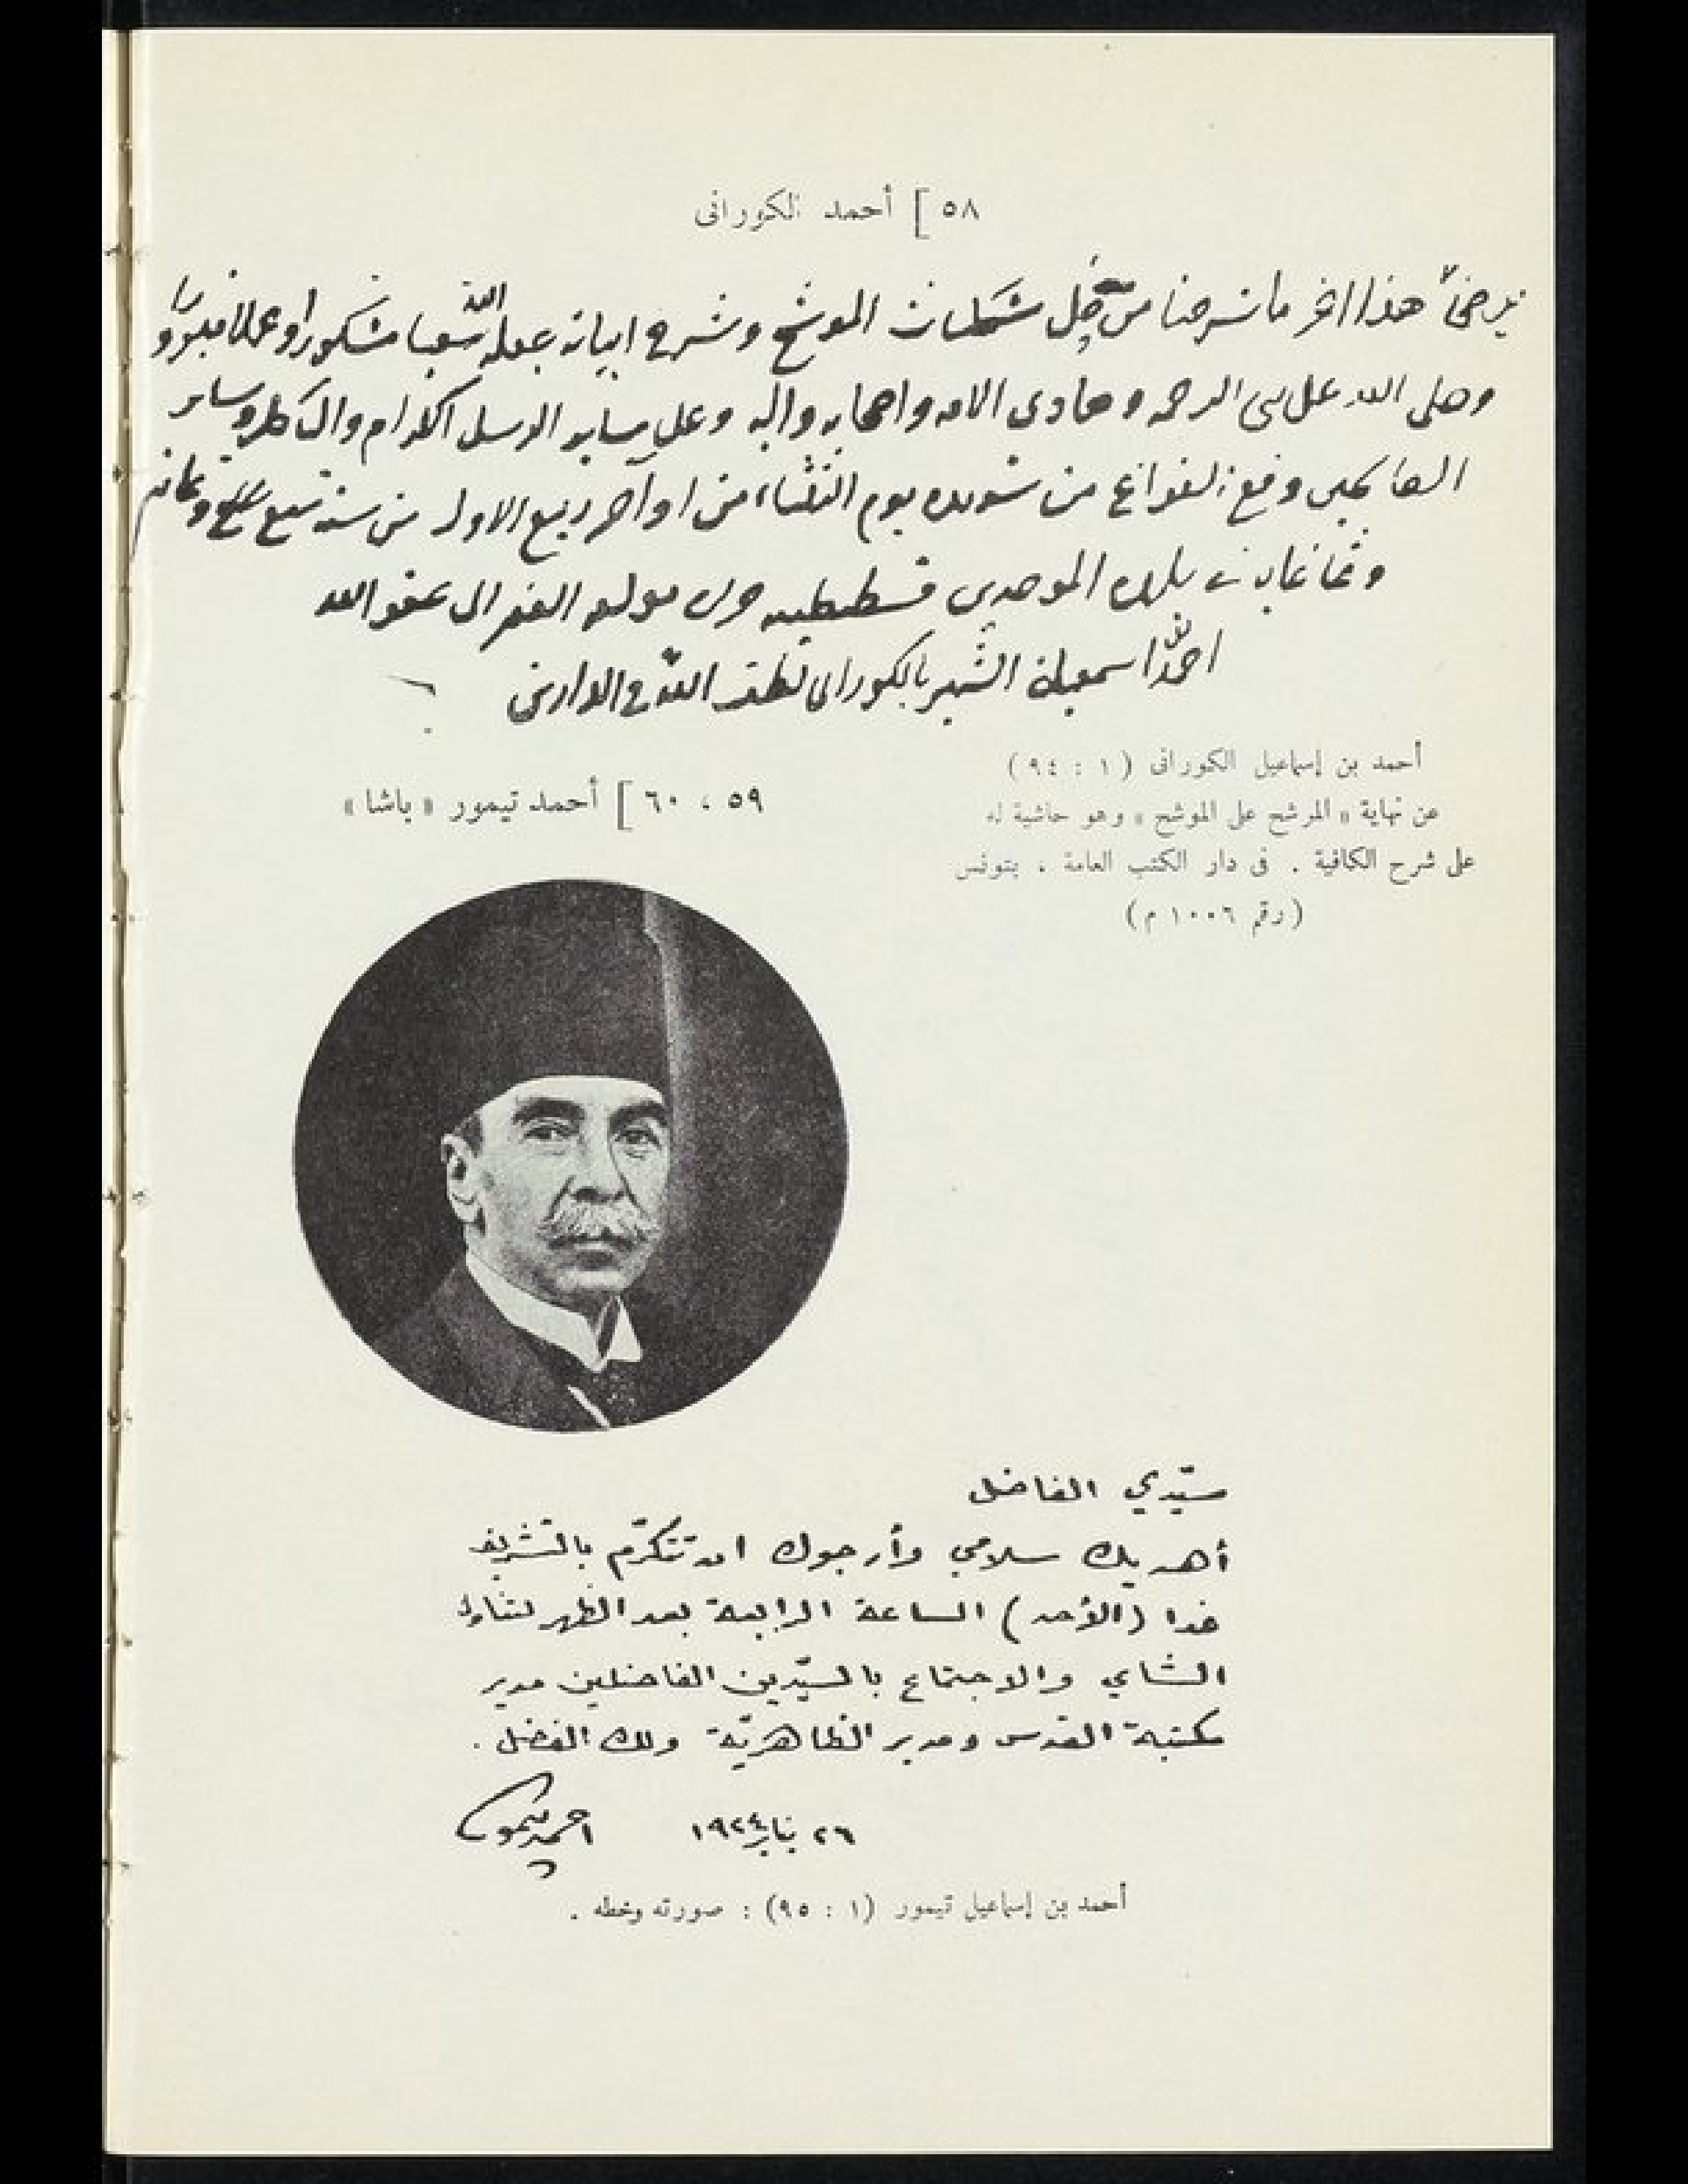 ٥٨ ] أحمد الكورانى
هذا اخر ما شرحنا من حل مشكلات الموشح وشرح ابياته جعله الله سعيا مشكورا وعملا مبرورا
وصلى الله على نبى الرحمه وهادى الامه واصحابه واله وعلى ساير الرسل الكرام وال كل وساير
وقع الفراغ من تسويده يوم الثلثاء من اواخر ربيع الاول من سنه تسع
وثمانمايه بلده الموحدين قسطنطينيه مولفه الفقير الى عفو الله
احمد بن اسمعيل الشهير بالكورانى لطف الله فى الدارين
أحمد بن إسماعيل الكورانى ( ١ : ٩٤ )
عن نهاية « المرشح على الموشح » وهو حاشية له
على شرح الكافية . فى دار الكتب العامة ، بتونس
( رقم ١٠٠٦ م )
٥٩ ، ٦٠ ] أحمد تيمور « باشا »
سيّدي الفاضل
أهديك سلامي وأرجوك ان تتكرّم بالتشريف
غدا (الأحد) الساعة الرابعة بعد الظهر لتناول
الشاي والاجتماع بالسيّدين الفاضلين مدير
مكتبة القدس ومدير الظاهريّة ولك الفضل .
٢٦ يناير ١٩٢٤ احمد تيمور
أحمد بن إسماعيل تيمور ( ١ : ٩٥ ) : صورته وخطه .